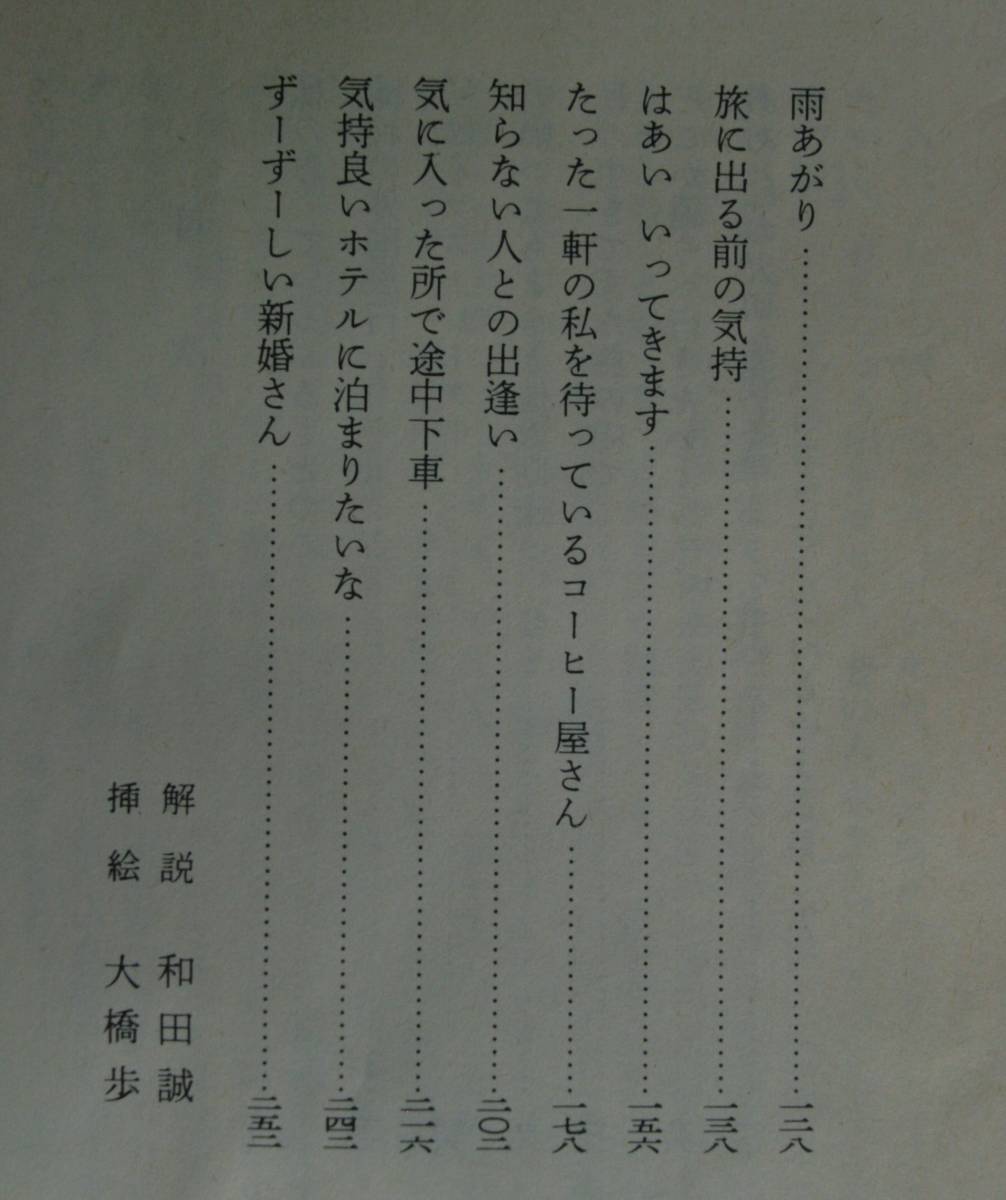 雨あがり……………………一二八
旅に出る前の気持……………………一三八
はあい いってきます……………………一五六
たった一軒の私を待っているコーヒー屋さん……………………一七八
知らない人との出逢い……………………二〇二
気に入った所で途中下車……………………二一六
気持良いホテルに泊まりたいな……………………二四二
ずーずーしい新婚さん……………………二五二
解説 和田誠
挿絵 大橋歩